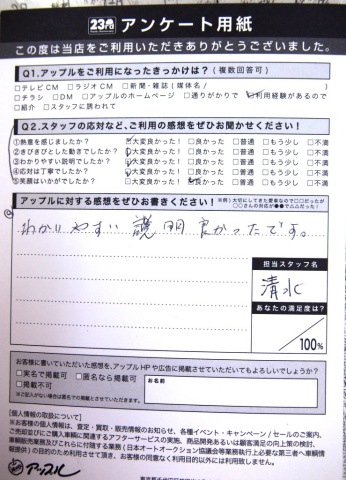 アンケート用紙
この度は当店をご利用いただきありがとうございました。
Q1.アップルをご利用になったきっかけは?(複数回答可)
□テレビCM □ラジオCM □新聞・雑誌(媒体名/ )
□チラシ □DM □アップルのホームページ □通りがかりで □利用経験があるので
□紹介 □スタッフに誘われて
Q2.スタッフの応対など、ご利用の感想をぜひお聞かせください!
①熱意を感じましたか? □大変良かった! □良かった □普通 □もう少し □不満
②きびきびとした動きでしたか? □大変良かった! □良かった □普通 □もう少し □不満
③わかりやすい説明でしたか? □大変良かった! □良かった □普通 □もう少し □不満
④応対は丁寧でしたか? □大変良かった! □良かった □普通 □もう少し □不満
⑤笑顔はいかがでしたか? □大変良かった! □良かった □普通 □もう少し □不満
アップルに対する感想をぜひお書きください!
わかりやすい説明良かったです。
担当スタッフ名
清水
あなたの満足度は?
/100%
お客様に書いていただいた感想を、アップルHPや広告に掲載させていただいてもよろしいでしょうか?
□実名で掲載可 □匿名なら掲載可
□掲載不可
お名前
※ご記入がない場合は匿名での掲載とさせていただきます。
【個人情報の取扱について】
※お客様の個人情報は、査定・買取・販売情報のお知らせ、各種イベント・キャンペーン/セールのご案内、
ご売却並びにご購入車輌に関連するアフターサービスの実施、商品開発あるいは顧客満足の向上策の検討、
車輌販売業務及びこれらに付随する業務(日本オートオークション協議会等業務執行上必要な第三者へ車輌情
報提供)の目的のため利用させて頂き、お客様の同意なく利用目的以外には利用致しません。
アップル